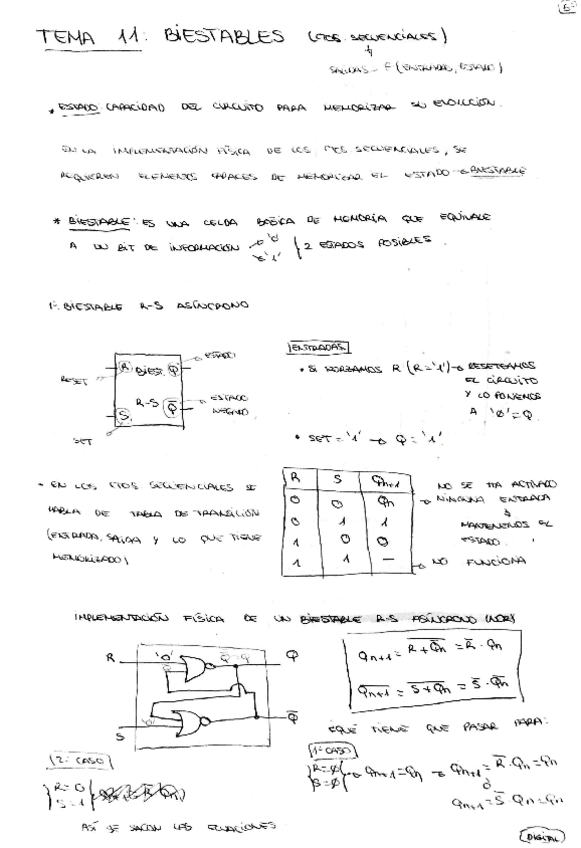 TEMA 11: BIESTABLES (CTOS. SECUENCIALES)
SALIDAS = F (ENTRADAS, ESTADO)
* ESTADO: CAPACIDAD DEL CIRCUITO PARA MEMORIZAR SU EVOLUCIÓN.
EN LA IMPLEMENTACIÓN FÍSICA DE LOS CTOS SECUENCIALES, SE
REQUIEREN ELEMENTOS CAPACES DE MEMORIZAR EL ESTADO → BIESTABLE
* BIESTABLE: ES UNA CELDA BÁSICA DE MEMORIA QUE EQUIVALE
A UN BIT DE INFORMACIÓN → '0' → '1' } 2 ESTADOS POSIBLES.
1º BIESTABLE R-S ASÍNCRONO
R BIEST. Q → ESTADO
RESET
R-S
S Q̅ → ESTADO NEGADO
SET
ENTRADAS
• SI FORZAMOS R (R='1') → RESETEAMOS
EL CIRCUITO
Y LO PONEMOS
A '0' = Q
• SET = '1' → Q = '1'.
• EN LOS CTOS SECUENCIALES SE
HABLA DE TABLA DE TRANSICIÓN
(ENTRADA, SALIDA Y LO QUE TIENE
MEMORIZADO)
R S Qn+1
0 0 Qn
0 1 1
1 0 0
1 1 —
NO SE HA ACTIVADO
NINGUNA ENTRADA
MANTENEMOS EL
ESTADO.
NO FUNCIONA
IMPLEMENTACIÓN FÍSICA DE UN BIESTABLE R-S ASÍNCRONO (NOR)
R '0' Q
S '0' Q̅
Qn+1 = R+Q̅n = R̅ · Qn
Q̅n+1 = S+Qn = S̅ · Q̅n
¿QUÉ TIENE QUE PASAR PARA:
1º CASO
R=0
S=0 → Qn+1 = Qn → Qn+1 = R̅ · Qn = Qn
Qn+1 = S̅ · Qn = Qn
2º CASO
R=0
S=1
ASÍ SE SACAN LAS ECUACIONES
DIGITAL